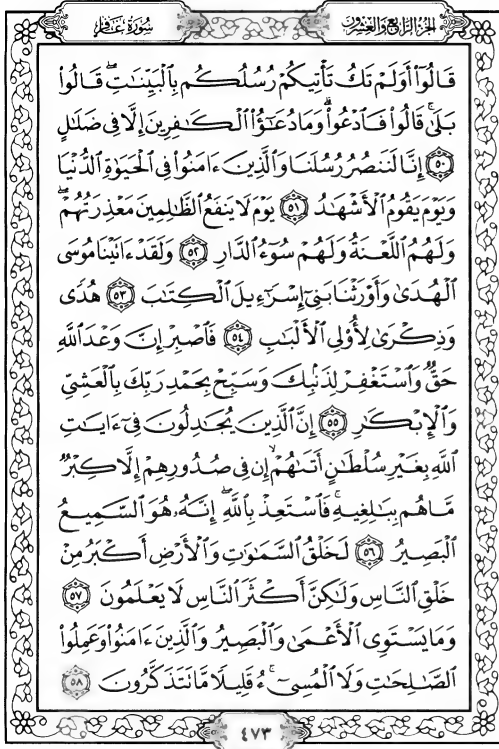 الجزء الرابع والعشرون سورة غافر
قَالُوٓا۟ أَوَلَمْ تَكُ تَأْتِيكُمْ رُسُلُكُم بِالْبَيِّنَٰتِ ۖ قَالُوا۟
بَلَىٰ ۚ قَالُوا۟ فَادْعُوا۟ ۗ وَمَا دُعَٰٓؤُا۟ الْكَٰفِرِينَ إِلَّا فِى ضَلَٰلٍ
﴿٥٠﴾ إِنَّا لَنَنصُرُ رُسُلَنَا وَالَّذِينَ ءَامَنُوا۟ فِى الْحَيَوٰةِ الدُّنْيَا
وَيَوْمَ يَقُومُ الْأَشْهَٰدُ ﴿٥١﴾ يَوْمَ لَا يَنفَعُ الظَّٰلِمِينَ مَعْذِرَتُهُمْ ۖ
وَلَهُمُ اللَّعْنَةُ وَلَهُمْ سُوٓءُ الدَّارِ ﴿٥٢﴾ وَلَقَدْ ءَاتَيْنَا مُوسَى
الْهُدَىٰ وَأَوْرَثْنَا بَنِىٓ إِسْرَٰٓءِيلَ الْكِتَٰبَ ﴿٥٣﴾ هُدًى
وَذِكْرَىٰ لِأُو۟لِى الْأَلْبَٰبِ ﴿٥٤﴾ فَاصْبِرْ إِنَّ وَعْدَ اللَّهِ
حَقٌّ وَاسْتَغْفِرْ لِذَنۢبِكَ وَسَبِّحْ بِحَمْدِ رَبِّكَ بِالْعَشِىِّ
وَالْإِبْكَٰرِ ﴿٥٥﴾ إِنَّ الَّذِينَ يُجَٰدِلُونَ فِىٓ ءَايَٰتِ
اللَّهِ بِغَيْرِ سُلْطَٰنٍ أَتَىٰهُمْ ۙ إِن فِى صُدُورِهِمْ إِلَّا كِبْرٌ
مَّا هُم بِبَٰلِغِيهِ ۚ فَاسْتَعِذْ بِاللَّهِ ۖ إِنَّهُۥ هُوَ السَّمِيعُ
الْبَصِيرُ ﴿٥٦﴾ لَخَلْقُ السَّمَٰوَٰتِ وَالْأَرْضِ أَكْبَرُ مِنْ
خَلْقِ النَّاسِ وَلَٰكِنَّ أَكْثَرَ النَّاسِ لَا يَعْلَمُونَ ﴿٥٧﴾
وَمَا يَسْتَوِى الْأَعْمَىٰ وَالْبَصِيرُ وَالَّذِينَ ءَامَنُوا۟ وَعَمِلُوا۟
الصَّٰلِحَٰتِ وَلَا الْمُسِىٓءُ ۚ قَلِيلًا مَّا تَتَذَكَّرُونَ ﴿٥٨﴾
٤٧٣